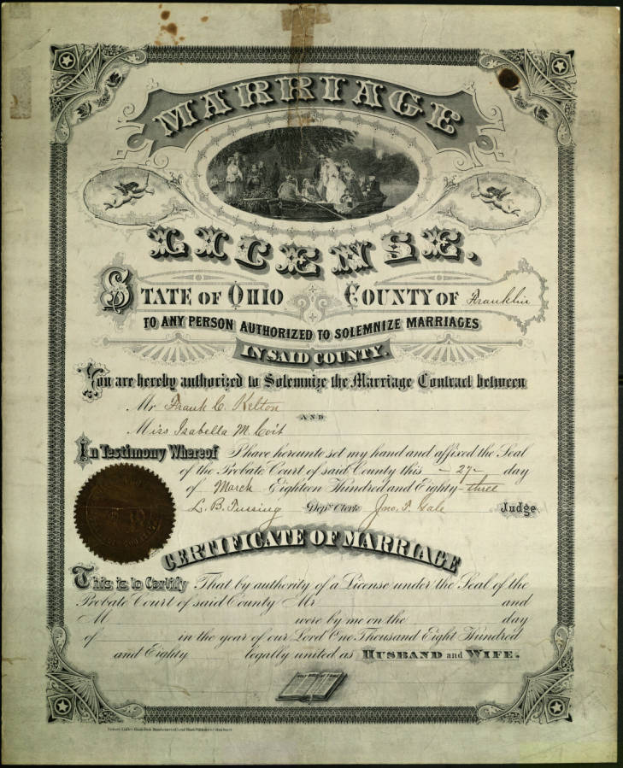 MARRIAGE
LICENSE.
STATE OF OHIO COUNTY OF Franklin
TO ANY PERSON AUTHORIZED TO SOLEMNIZE MARRIAGES
IN SAID COUNTY.
You are hereby authorized to Solemnize the Marriage Contract between
Mr Frank C. Kelton
AND
Miss Isabella M. Coit
In Testimony Whereof I have hereunto set my hand and affixed the Seal
of the Probate Court of said County this 27 day
of March Eighteen Hundred and Eighty-three
L. B. Tussing Dep. Clerk Jno. T. Gale Judge
CERTIFICATE OF MARRIAGE
This is to Certify That by authority of a License under the Seal of the
Probate Court of said County Mr and
M were by me on the day
of in the year of our Lord One Thousand Eight Hundred
and Eighty legally united as HUSBAND and WIFE.